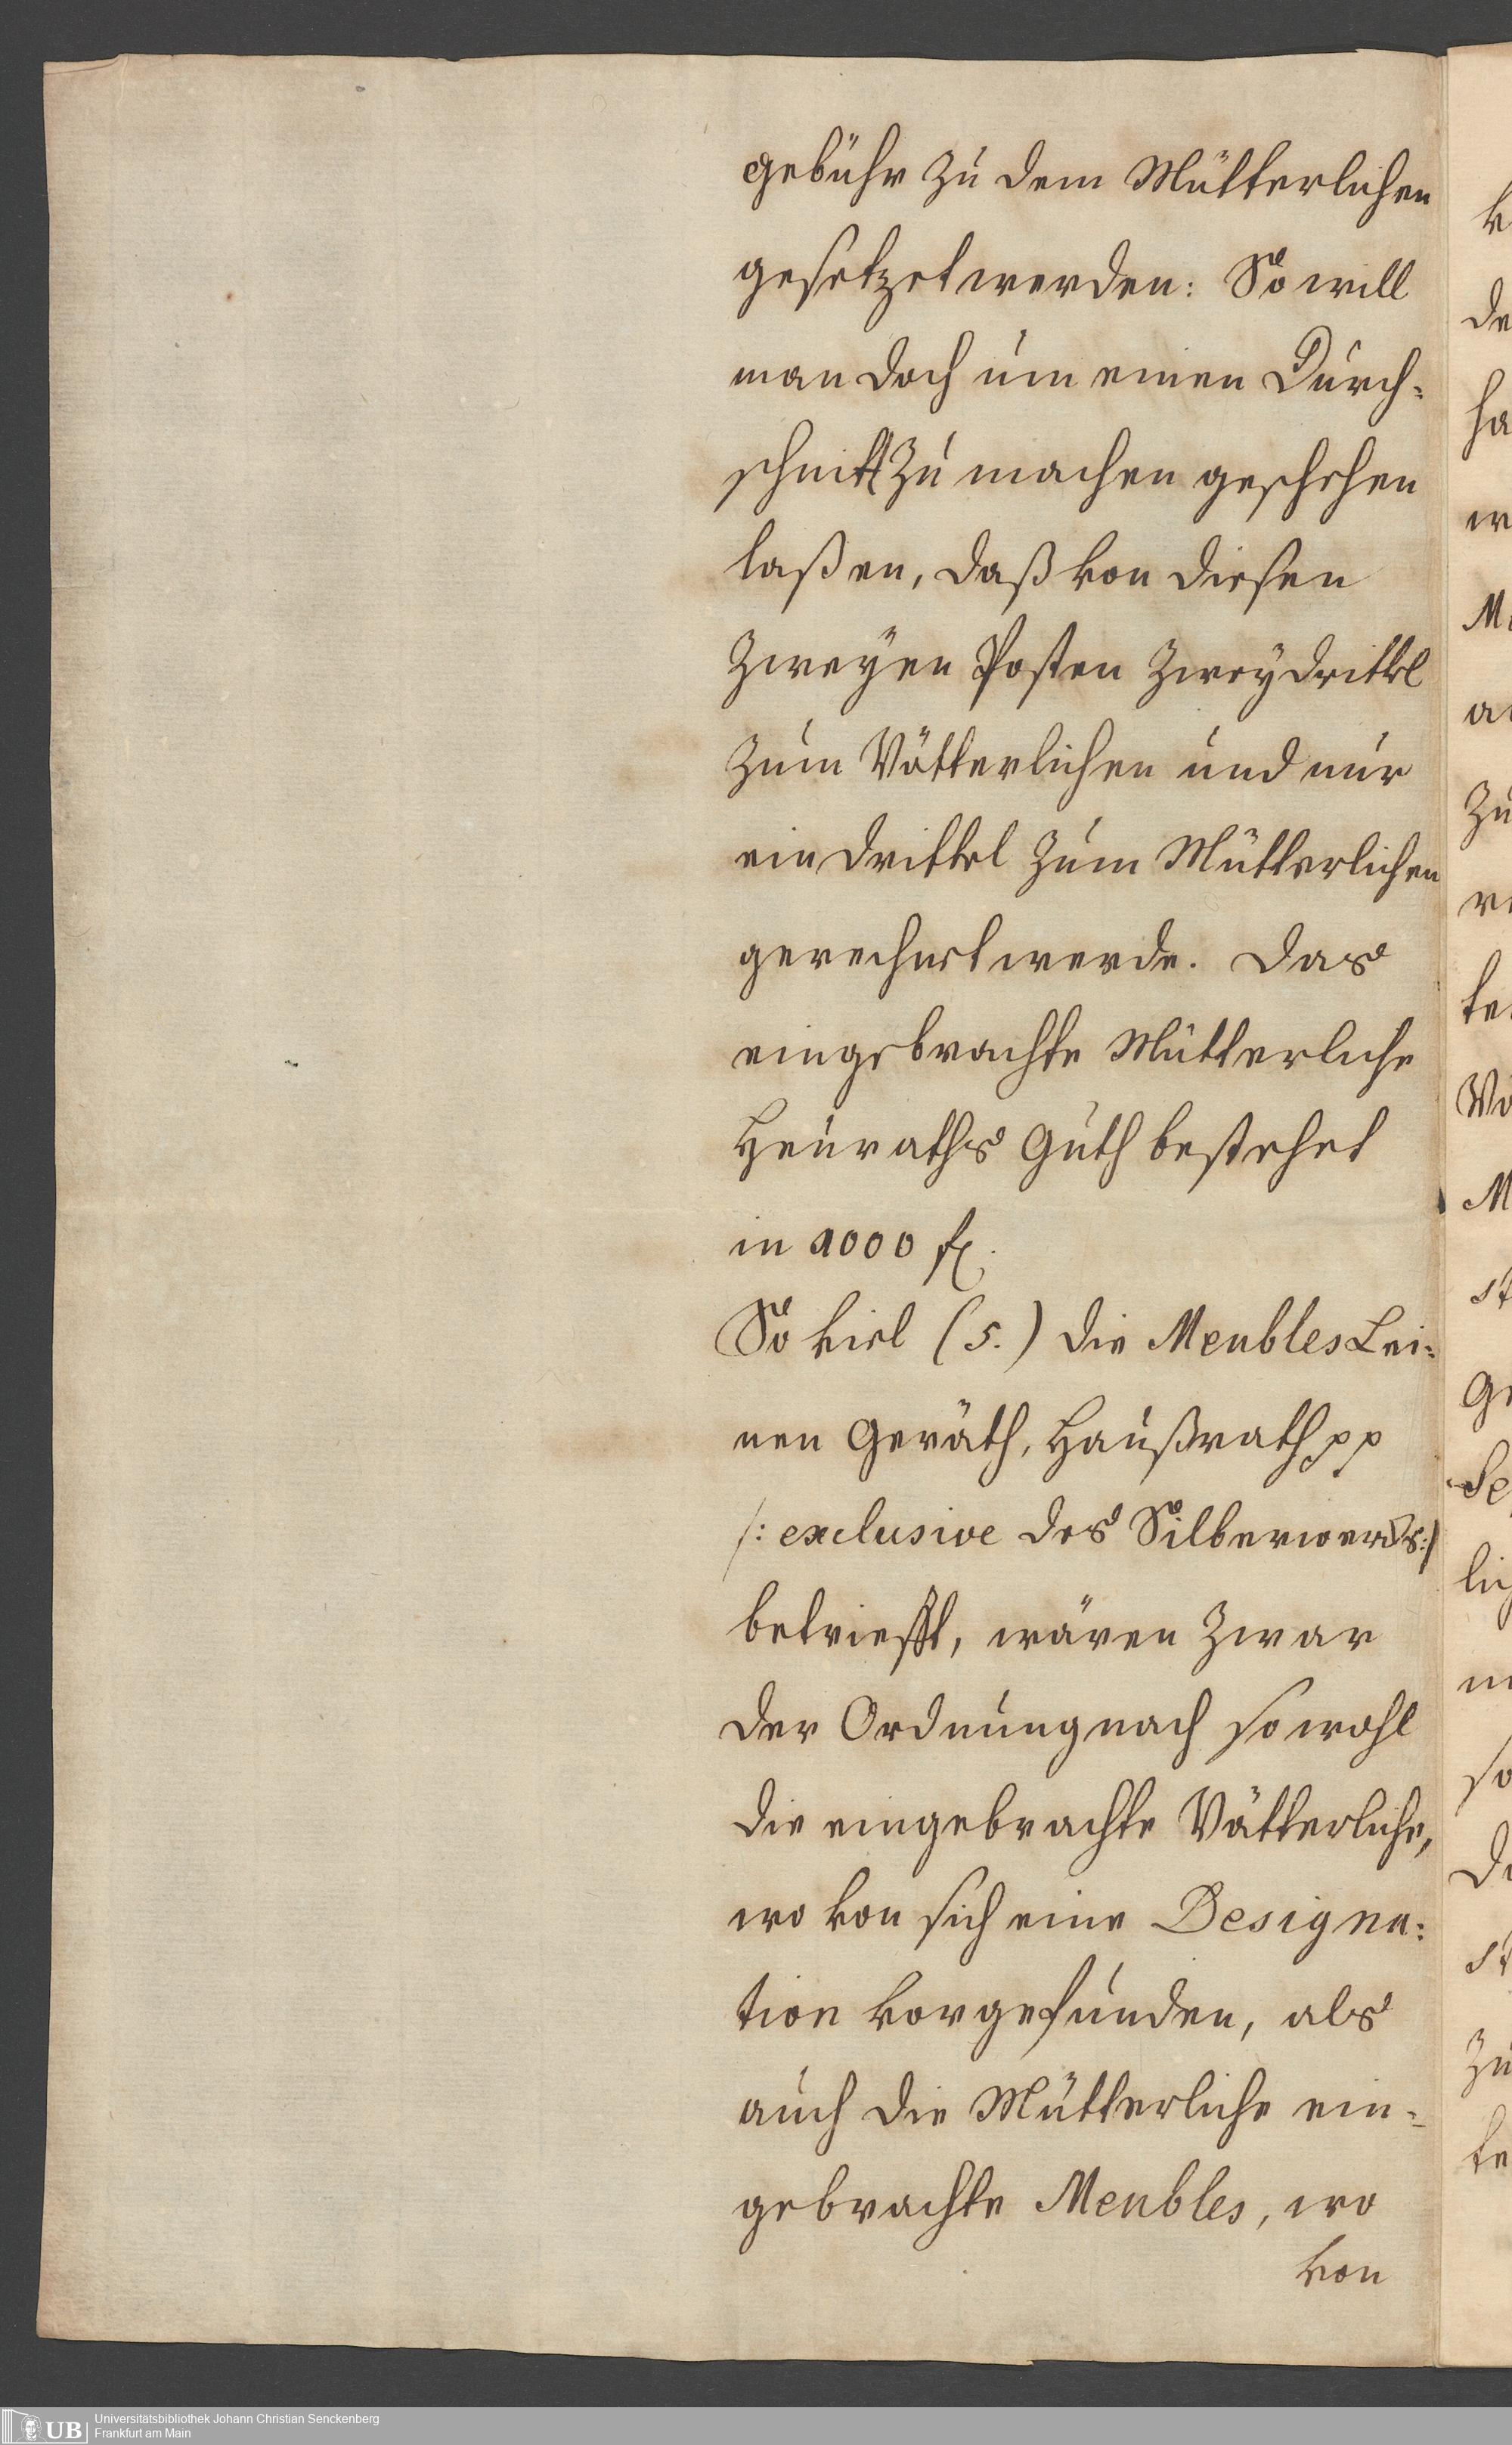 gebühr zu dem Mütterlichen
gesetzet werden: So will
man doch um einen Durch-
schnitt zu machen geschehen
laßen, daß von diesen
zweÿen Posten zweÿ drittel
zum Vätterlichen und nur
ein drittel zum Mütterlichen
gerechnet werde. Das
eingebrachte Mütterliche
Heuraths Guth bestehet
in 1000 f.
So viel (5.) die Meubles Lei-
nen Geräth, Haußrath pp
/: exclusive des Silberwercks :/
betriefft, wären zwar
der Ordnung nach sowohl
die eingebrachte Vätterliche,
wovon sich eine Designa-
tion vorgefunden, als
auch die Mütterliche ein-
gebrachte Meubles, wo
von
UB Universitätsbibliothek Johann Christian Senckenberg
Frankfurt am Main